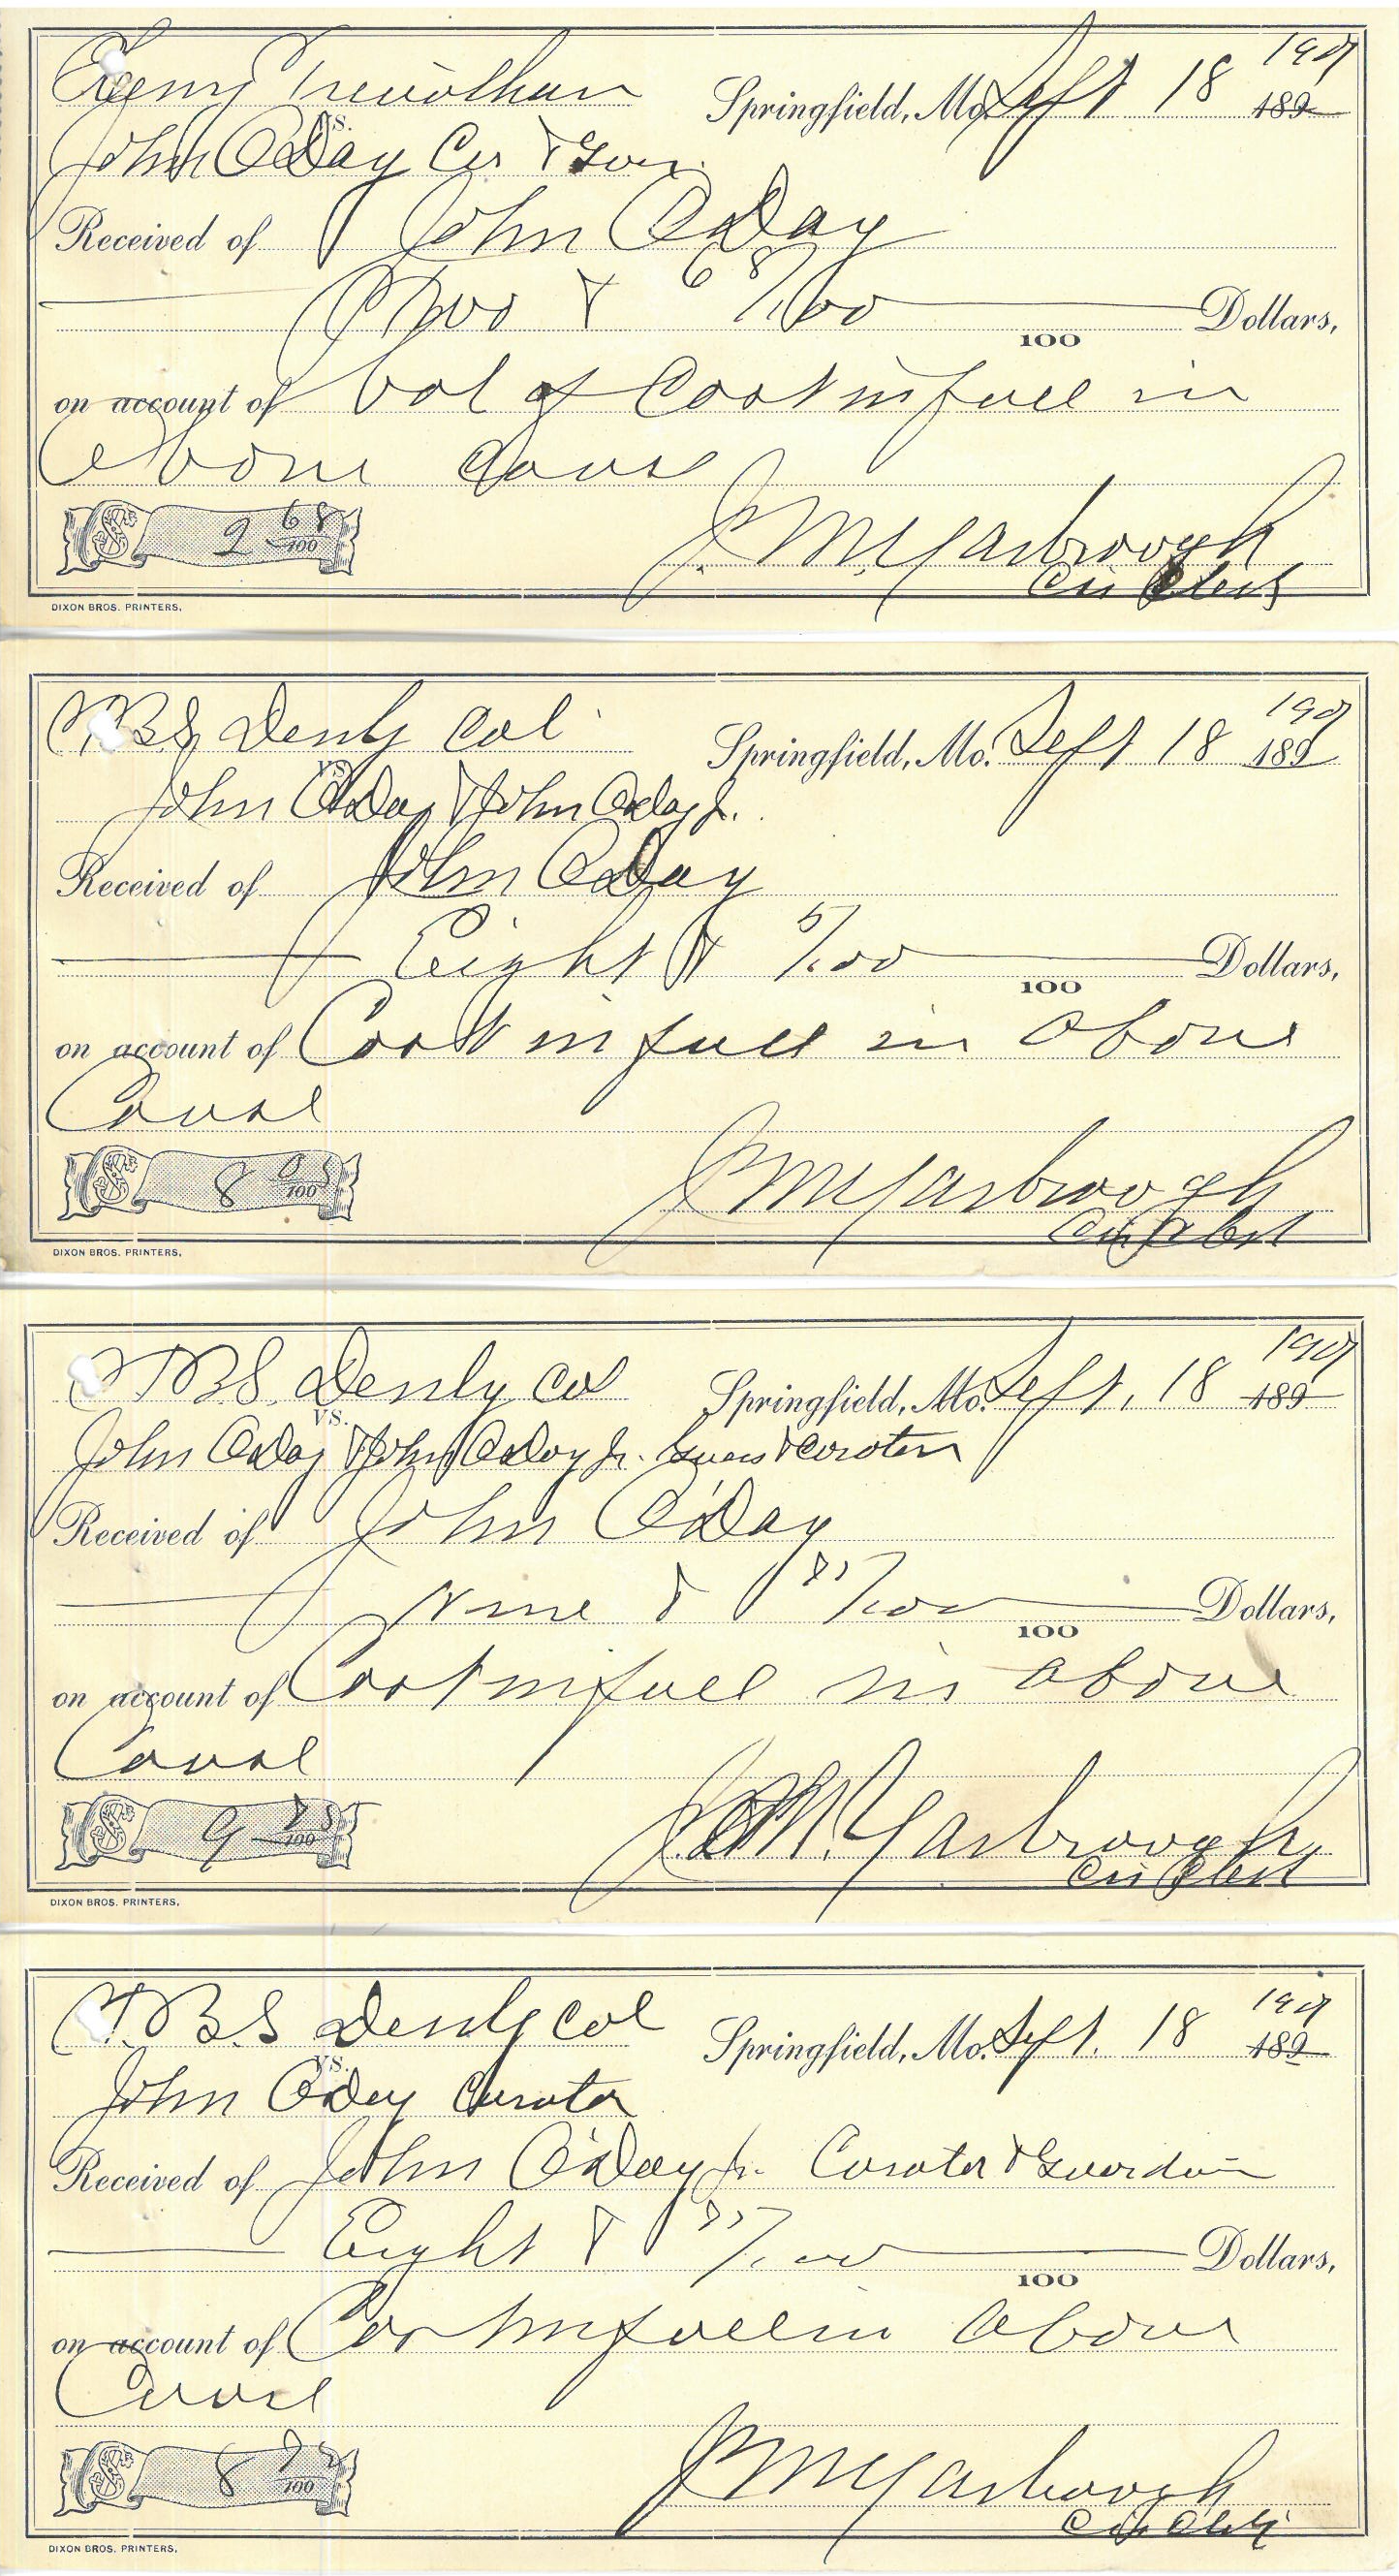 Trevathan
Springfield, Mo. Sept 18 1901 189
vs.
John O'Day Cur & Guar.
Received of John O'Day
Two & 68/100
100 Dollars,
on account of bal of Cost in full in
above cause
$ 2 68/100
J. M. Yarbrough
Cir Clerk
DIXON BROS. PRINTERS.
B S Denly Col
Springfield, Mo. Sept 18 1901 189
vs.
John O'Day & John O'Day Jr.
Received of John O'Day
Eight & 5/100
100 Dollars,
on account of Cost in full in above
Cause
$ 8 05/100
J M Yarbrough
Cir Clerk
DIXON BROS. PRINTERS.
B.S. Denly Col
Springfield, Mo. Sept. 18 1901 189
vs.
John O'Day & John O'Day Jr. Guar & Curator
Received of John O'Day
Nine & /100
100 Dollars,
on account of Cost in full in above
Cause
$ 9 /100
J. M. Yarbrough
Cir Clerk
DIXON BROS. PRINTERS.
B.S Denly Col
Springfield, Mo. Sept. 18 1901 189
vs.
John O'Day Curator
Received of John O'Day Jr. Curator & Guardian
Eight & /100
100 Dollars,
on account of Cost in full in above
Cause
$ 8 /100
J M Yarbrough
Cir Clerk
DIXON BROS. PRINTERS.